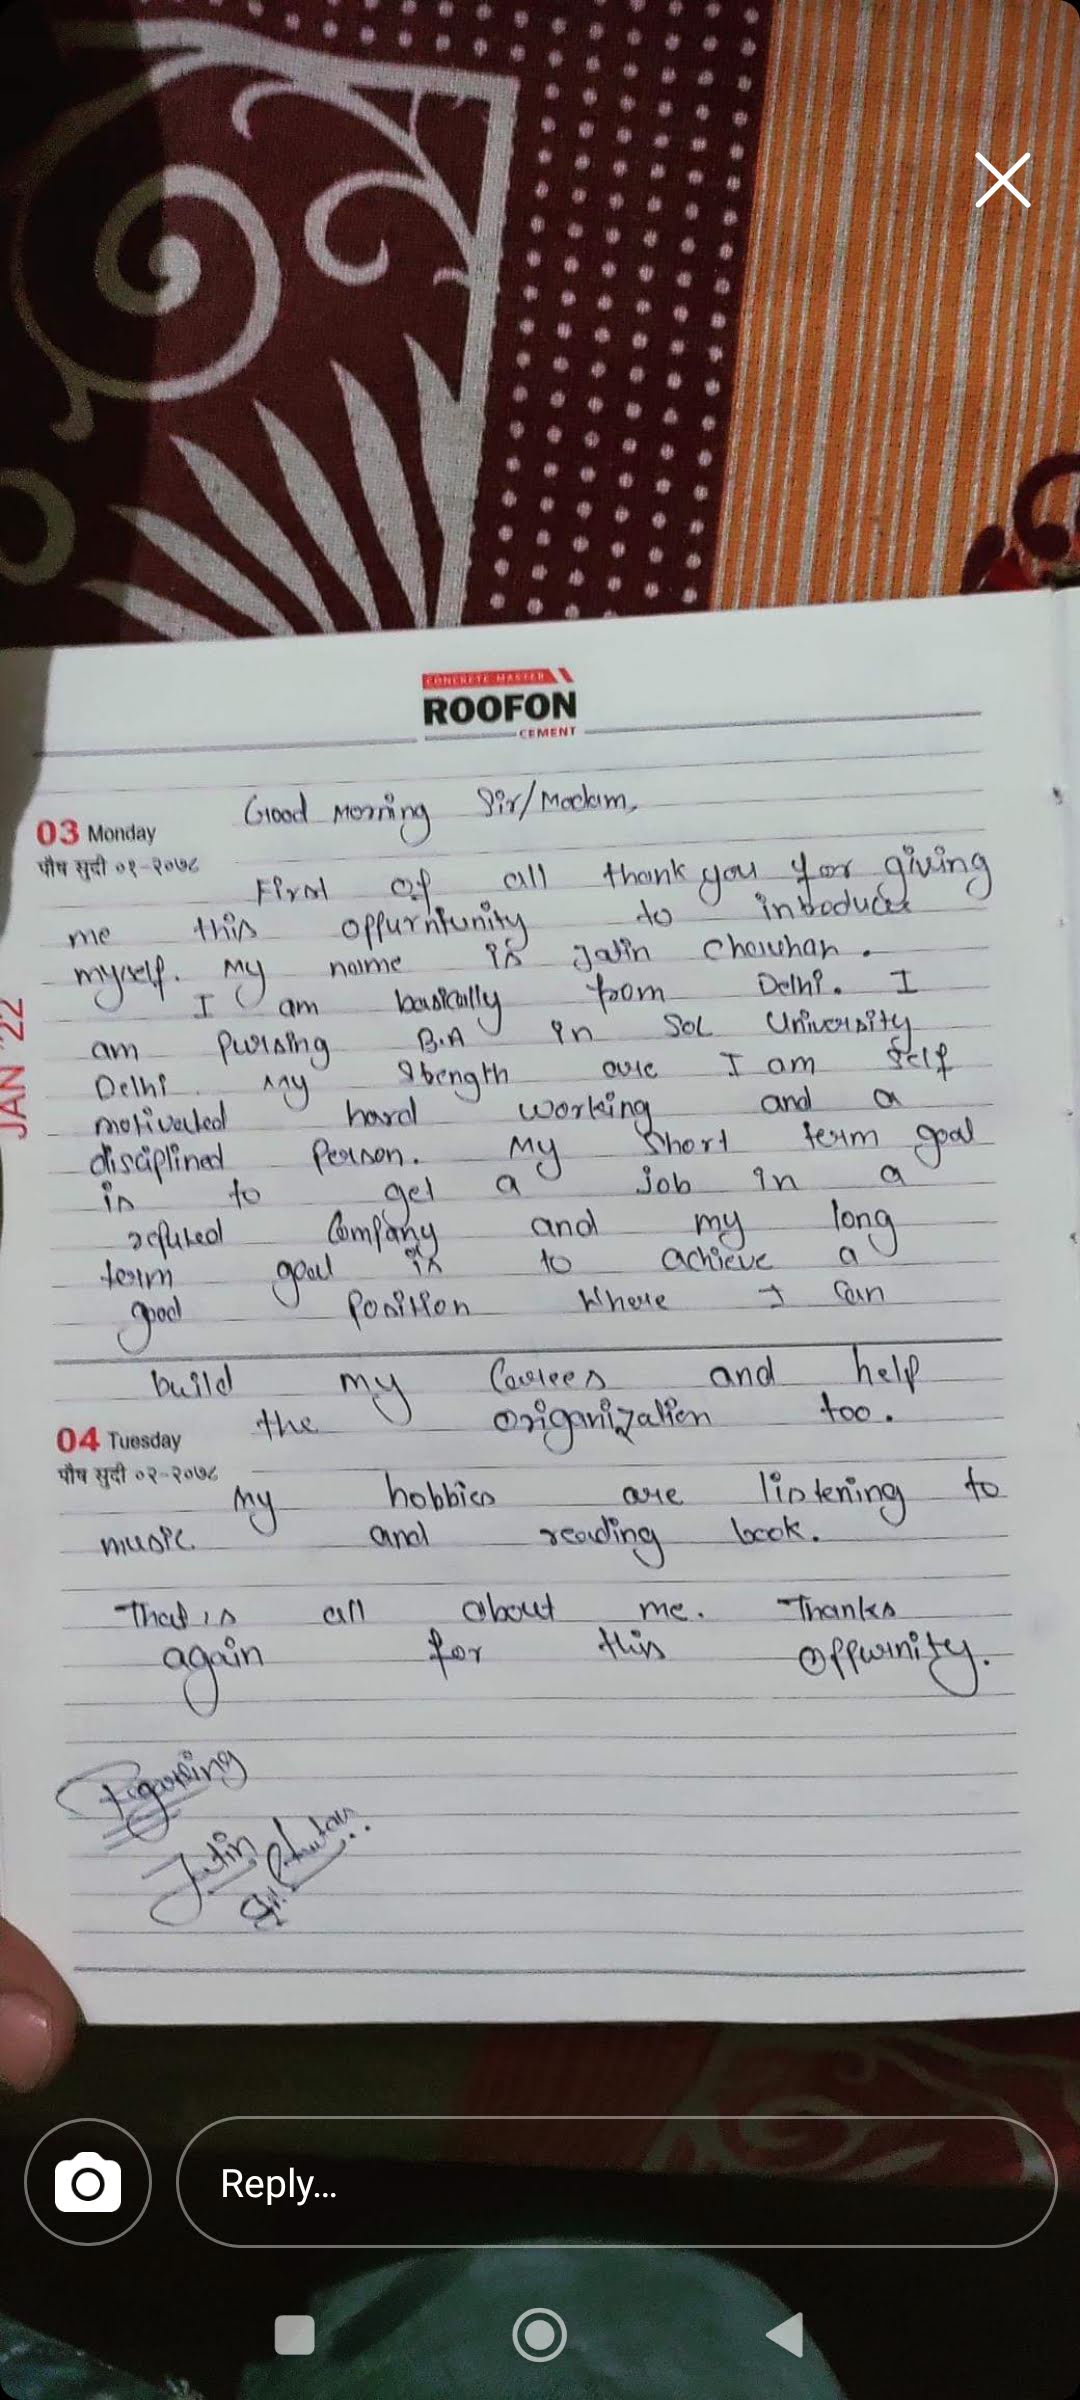 CONCRETE MASTER
ROOFON
CEMENT
Good Morning Sir/Madam,
03 Monday
पौष सुदी ०१-२०७८
First of all thank you for giving
me this oppurntunity to introduce
myself. My name is Jatin Chauhan.
I am basically from Delhi. I
am pursing B.A in SOL University
Delhi. My stength are I am self
motivated hard working and a
disciplined person. My short term goal
is to get a job in a
reputed Company and my long
term goal is to achieve a
good position where I can
JAN '22
build my Carees and help
the origanization too.
04 Tuesday
पौष सुदी ०२-२०७८
My hobbies are listening to
music and reading book.
That is all about me. Thanks
again for this oppurnity.
Jatin
Reply...